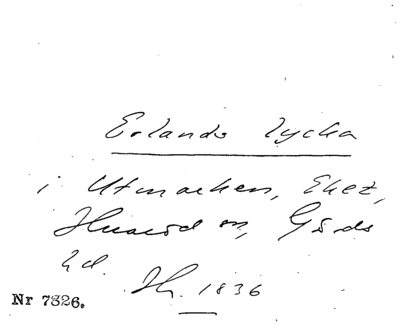 Erlands lycka
i Utmarken, Eket,
Hvaröd sn, Gärds
hd. Jh. 1836
Nr 7826.